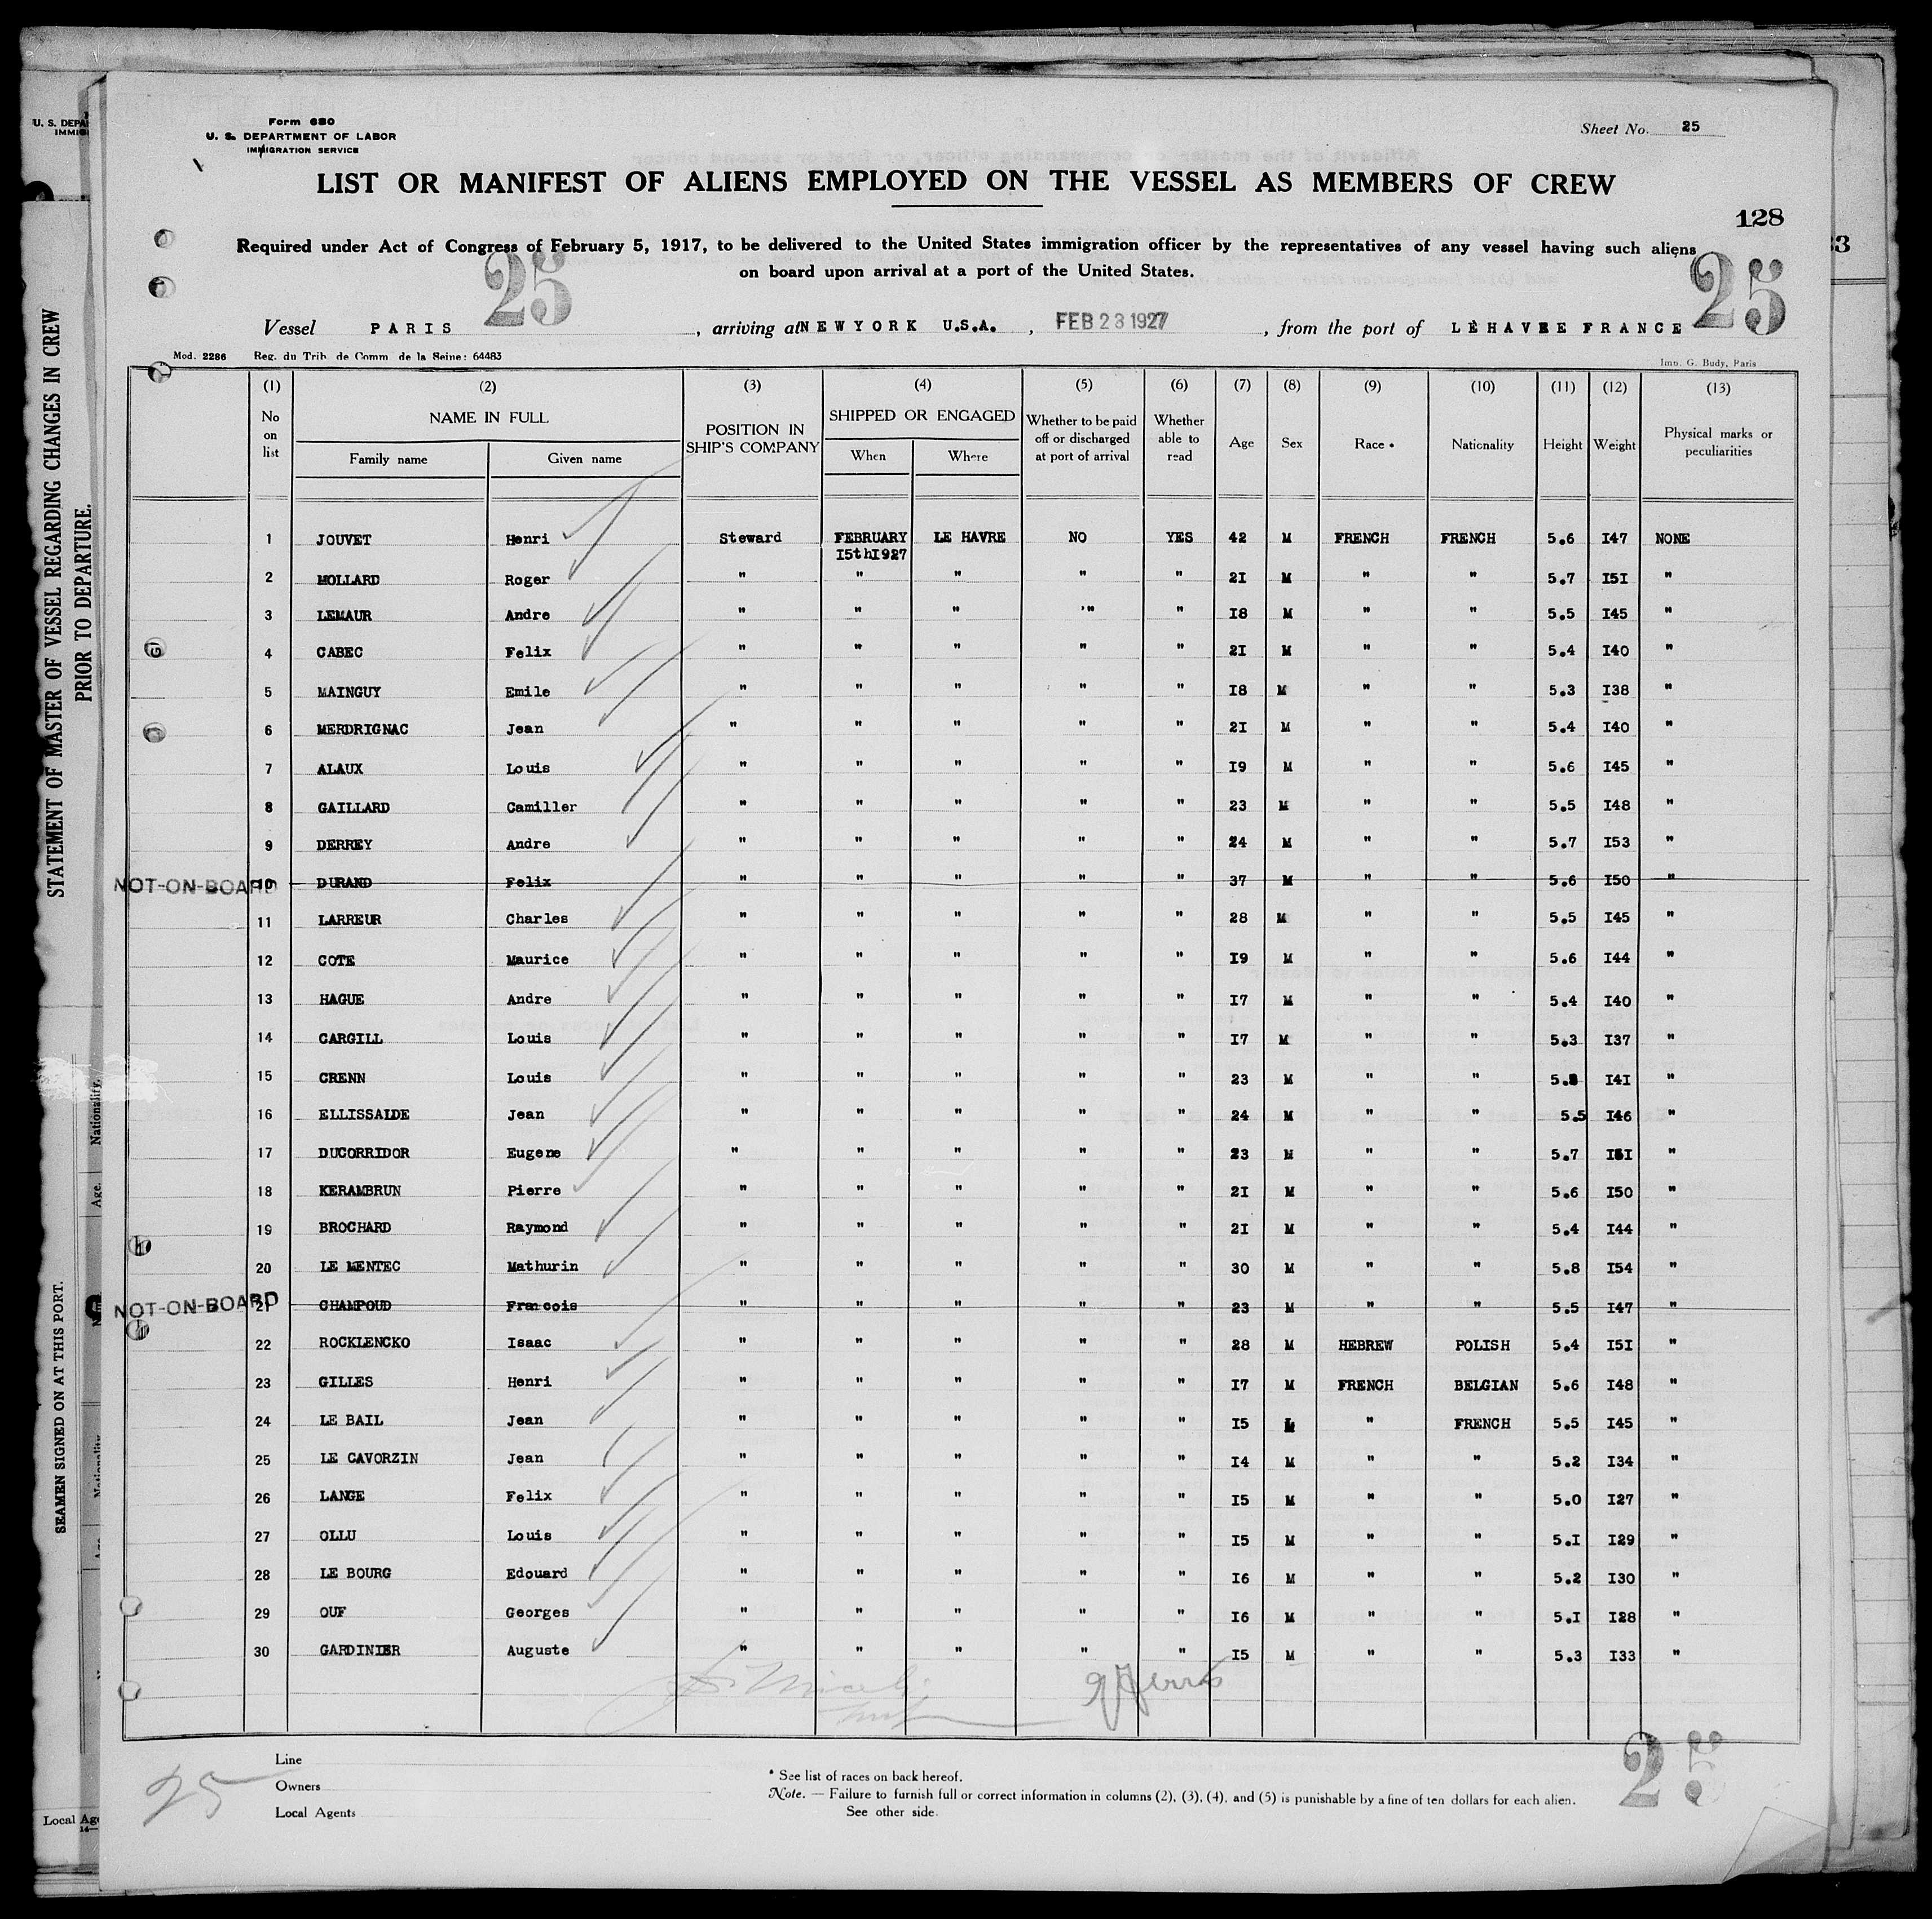 Form 680
U. S. DEPARTMENT OF LABOR
IMMIGRATION SERVICE
Sheet No. 25
LIST OR MANIFEST OF ALIENS EMPLOYED ON THE VESSEL AS MEMBERS OF CREW
128
Required under Act of Congress of February 5, 1917, to be delivered to the United States immigration officer by the representatives of any vessel having such aliens
on board upon arrival at a port of the United States.
25 25
Vessel PARIS , arriving at NEWYORK U.S.A. , FEB 23 1927 , from the port of LE HAVRE FRANCE
Mod. 2286 Reg. du Trib. de Comm. de la Seine: 64483 Imp. G. Budy, Paris
(1) (2) (3) (4) (5) (6) (7) (8) (9) (10) (11) (12) (13)
No on list NAME IN FULL Family name Given name POSITION IN SHIP'S COMPANY SHIPPED OR ENGAGED When Where Whether to be paid off or discharged at port of arrival Whether able to read Age Sex Race * Nationality Height Weight Physical marks or peculiarities
1 JOUVET Henri Steward FEBRUARY I5thI927 LE HAVRE NO YES 42 M FRENCH FRENCH 5.6 I47 NONE
2 MOLLARD Roger " " " " " 2I M " " 5.7 I5I "
3 LEMAUR Andre " " " '" " I8 M " " 5.5 I45 "
4 CABEC Felix " " " " " 2I M " " 5.4 I40 "
5 MAINGUY Emile " " " " " I8 M " " 5.3 I38 "
6 MERDRIGNAC Jean " " " " " 2I M " " 5.4 I40 "
7 ALAUX Louis " " " " " I9 M " " 5.6 I45 "
8 GAILLARD Camiller " " " " " 23 M " " 5.5 I48 "
9 DERREY Andre " " " " " 24 M " " 5.7 I53 "
NOT-ON-BOARD 10 DURAND Felix " " " " " 37 M " " 5.6 I50 "
11 LARREUR Charles " " " " " 28 M " " 5.5 I45 "
12 COTE Maurice " " " " " I9 M " " 5.6 I44 "
13 HAGUE Andre " " " " " I7 M " " 5.4 I40 "
14 CARGILL Louis " " " " " I7 M " " 5.3 I37 "
15 CRENN Louis " " " " " 23 M " " I4I "
16 ELLISSALDE Jean " " " " " 24 M " " 5.5 I46 "
17 DUCORRIDOR Eugene " " " " " 23 M " " 5.7 I5I "
18 KERAMBRUN Pierre " " " " " 2I M " " 5.6 I50 "
19 BROCHARD Raymond " " " " " 2I M " " 5.4 I44 "
20 LE MENTEC Mathurin " " " " " 30 M " " 5.8 I54 "
NOT-ON-BOARD 21 CHAMPOUD Francois " " " " " 23 M " " 5.5 I47 "
22 ROCKLENCKO Isaac " " " " " 28 M HEBREW POLISH 5.4 I5I "
23 GILLES Henri " " " " " I7 M FRENCH BELGIAN 5.6 I48 "
24 LE BAIL Jean " " " " " I5 " FRENCH 5.5 I45 "
25 LE CAVORZIN Jean " " " " " I4 M " " 5.2 I34 "
26 LANGE Felix " " " " " I5 M " " 5.0 I27 "
27 OLLU Louis " " " " " I5 M " " 5.I I29 "
28 LE BOURG Edouard " " " " " I6 M " " 5.2 I30 "
29 OUF Georges " " " " " I6 M " " 5.I I28 "
30 GARDINIER Auguste " " " " " I5 M " " 5.3 I33 "
Line
Owners
Local Agents
25
* See list of races on back hereof.
Note. — Failure to furnish full or correct information in columns (2), (3), (4), and (5) is punishable by a fine of ten dollars for each alien.
See other side.
25
STATEMENT OF MASTER OF VESSEL REGARDING CHANGES IN CREW
PRIOR TO DEPARTURE.
SEAMEN SIGNED ON AT THIS PORT.
Nationality.
Age.